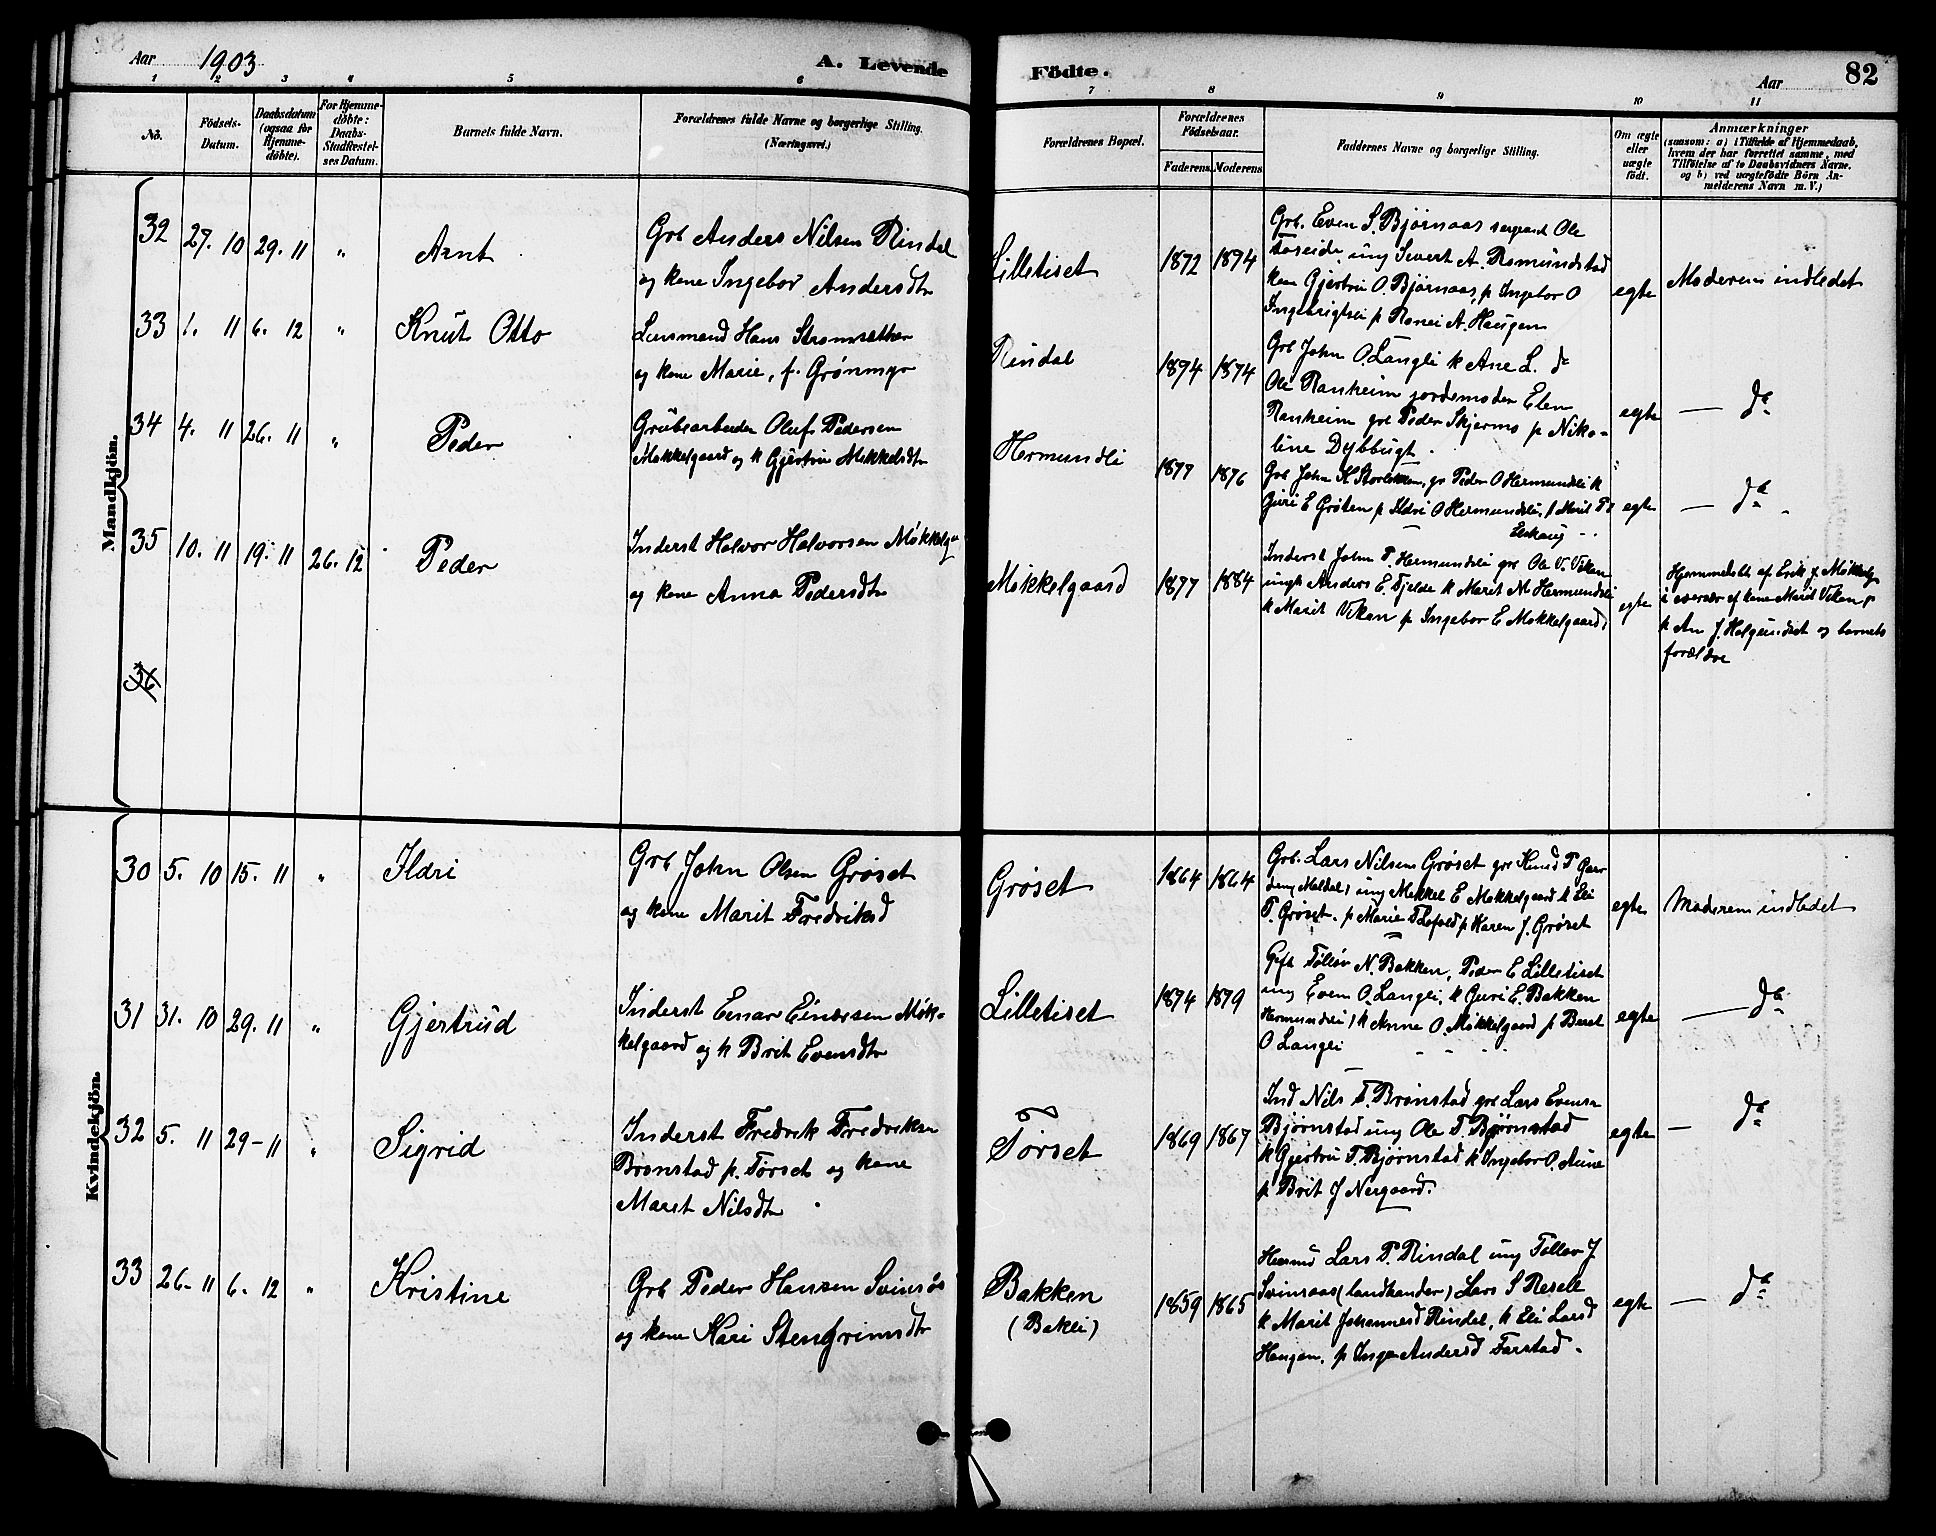 Aar 1903
A. Levende Födte.
Aar 82
1 2 3 4 5 6 7 8 9 10 11
No.
Födsels-Datum.
Daabsdatum (ogsaa for Hjemme-döbte).
For Hjemme-döbte: Daabs-Stadfæstel-ses Datum.
Barnets fulde Navn.
Forældrenes fulde Navne og borgerlige Stilling.
(Næringsvei.)
Forældrenes Bopæl.
Forældrenes Födselsaar.
Faderens. Moderens.
Faddernes Navne og borgerlige Stilling.
Om ægte eller uægte födt.
Anmærkninger
(saasom: a) i Tilfælde af Hjemmedaab,
hvem der har forrettet samme, med
Tilföielse af to Daabsvidners Navne.
og b) ved uægtefödte Börn An-
melderens Navn m. V.)
Mandkjön.
32 27. 10 29. 11 " Arnt
Grb Anders Nilsen Rindal
og kone Ingebor Andersdtr
Lilletiset 1872 1894
Grb. Even S. Bjørnaas Ole
ung Sivert A. Romundstad
kone Gjertru O. Bjørnaas, p Ingebor O
Ingebrigtsli p Ranei A. Haugen
egte Moderen indledet
33 1. 11 6. 12 " Knut Otto
Lensmand Hans Strømsæther
og kone Marie, f. Grønmyr
Rindal 1894 1874
Grb John O. Langli k Ane L. do
Ole Ranheim jordemoder Elen
Ranheim grb Peder Skjermo p Niko-
line Dybbugt.
egte — do
34 4. 11 26. 11 " Peder
Grubearbeider Oluf Pedersen
Møkkelgaard og k Gjertru Mikkelsdtr
Hermundli 1877 1876
Grb John H Storløkken, gr Peder O Hermundli k
Guri E Grøten p Ildri O Hermundli, p Marit P
egte — do
35 10. 11 19. 11 26. 12 Peder
Inderst Halvor Halvorsen Møkkelg
og kone Anna Pedersdtr
Møkkelgaard 1877 1884
Inderst John P. Hermundli grb Ole V. Vikan
ungk Anders E. Fjelde k Marit M Hermundsli
k Marit Vikan p Ingebor E Møkkelgaard,
egte
Hjemmedøbt af Erik J. Møkkelg
i overvær af kone Marit Vikan p
p An J. Helgundset og barnets
forældre
36
Kvindekjön.
30 5. 10 15. 11 " Ildri
Grb John Olsen Grøset
og kone Marit Fredriksd
Grøset 1864 1864
Grb. Lars Nilsen Grøset grb Knud P Garr
Meldal) ung Mekkel E Møkkelgaard k Eli
T. Grøset. p Marie T Løfald p Karen J. Grøset
egte Moderen indledet
31 31. 10 29. 11 " Gjertrud
Inderst Einar Einarsen Møk-
kelgaard og k Brit Evensdtr
Lilletiset 1874 1879
Gft Tølløv N. Bakken, Peder E Lilletiset
ung Even O. Langli, k Guri E. Bakken
Hermundli) k Anne O. Møkkelgaard p Beret
O Langli
egte — do
32 5. 11 29-11 " Sigrid
Inderst Fredrik Fredriksen
Brønstad p. Tørset og kone
Marit Nilsdtr
Tørset 1869 1867
Ind Nils T. Brønstad grb Lars Evensen
Bjørnstad ung Ole T. Bjørnstad
k Gjertru T. Bjørnstad k Ingebor O. Aune
p Brit J Nergaard.
egte — do
33 26-11 6. 12 " Kristine
Grb Peder Hansen Svinsås
og kone Kari Stengrimsdtr
Bakken
(Bakli)
1859 1865
Lars P. Rindal ung Tølløv J
Svinsaas (landhandler) Lars S Resell
k Marit Johannesd Rindal, k Eli Larsd
Haugen, p Inga Andersd Farstad.
egte — do